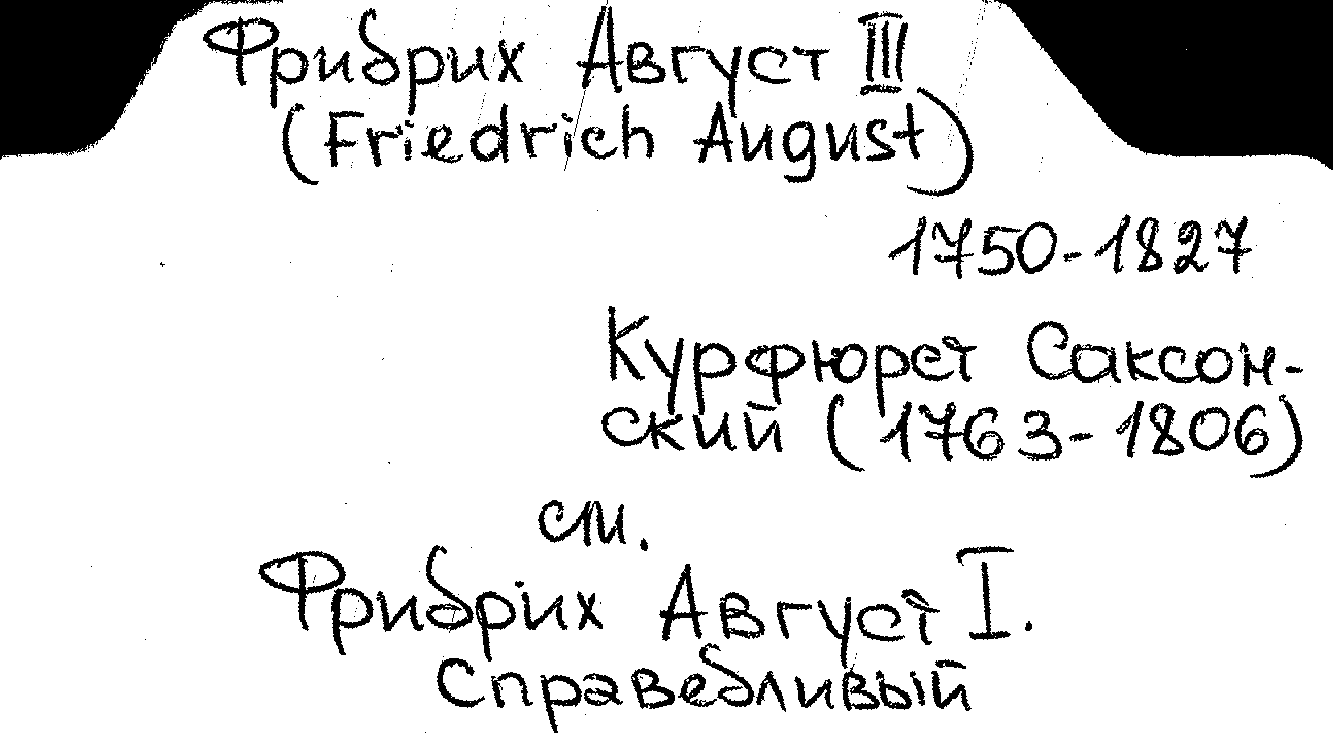 Фридрих Август III
(Friedrich August)
1750-1827
Курфюрст Саксон-
ский (1763-1806)
см.
Фридрих Август I.
Справедливый